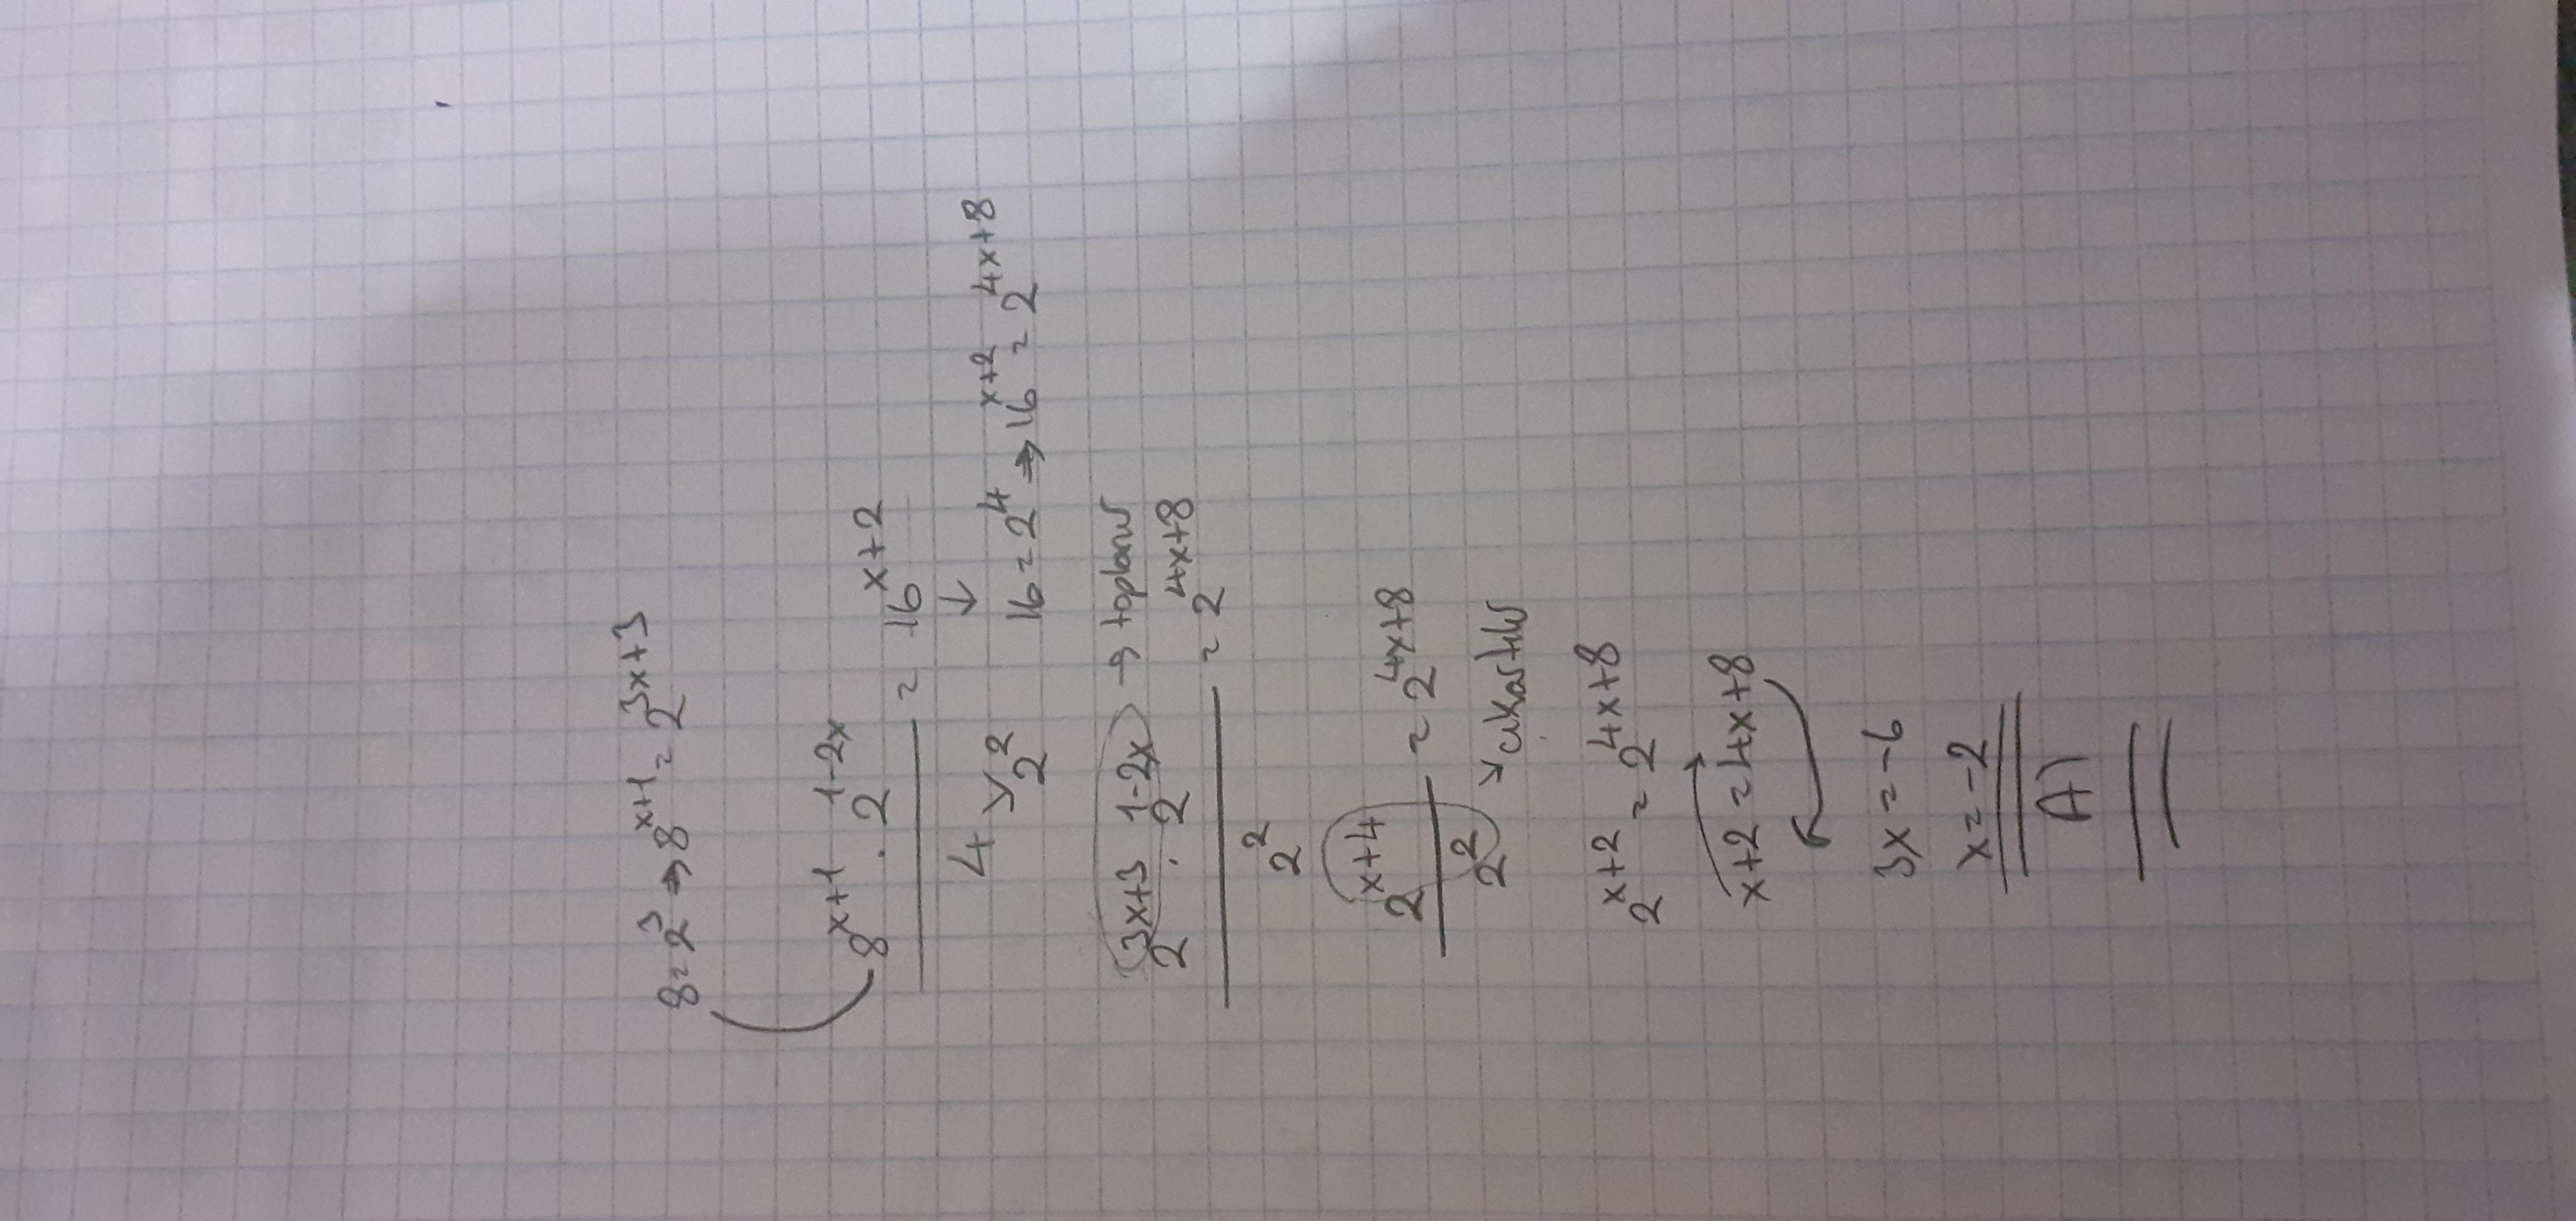 8=2³ ⇒ 8^(x+1) = 2^(3x+3)
8^(x+1) . 2^(1-2x) / 4 = 16^(x+2)
↓
4 → 2²
16=2⁴ ⇒ 16^(x+2) = 2^(4x+8)
2^(3x+3) . 2^(1-2x) → toplanır
/ 2² = 2^(4x+8)
2^(x+4) / 2² = 2^(4x+8)
→ çıkartılır
2^(x+2) = 2^(4x+8)
x+2 = 4x+8
3x = -6
x = -2
A)